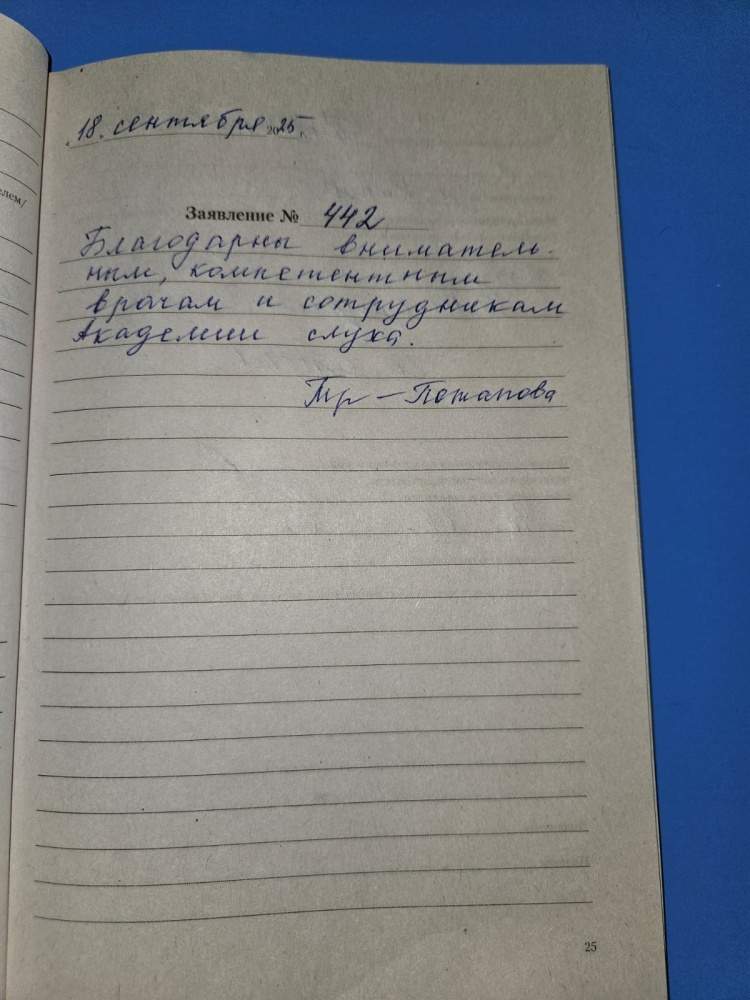 елем/
18. сентября 2025 г.
Заявление № 442
Благодарны вниматель-
ным, компетентным
врачам и сотрудникам
Академии слуха.
Потапова
25